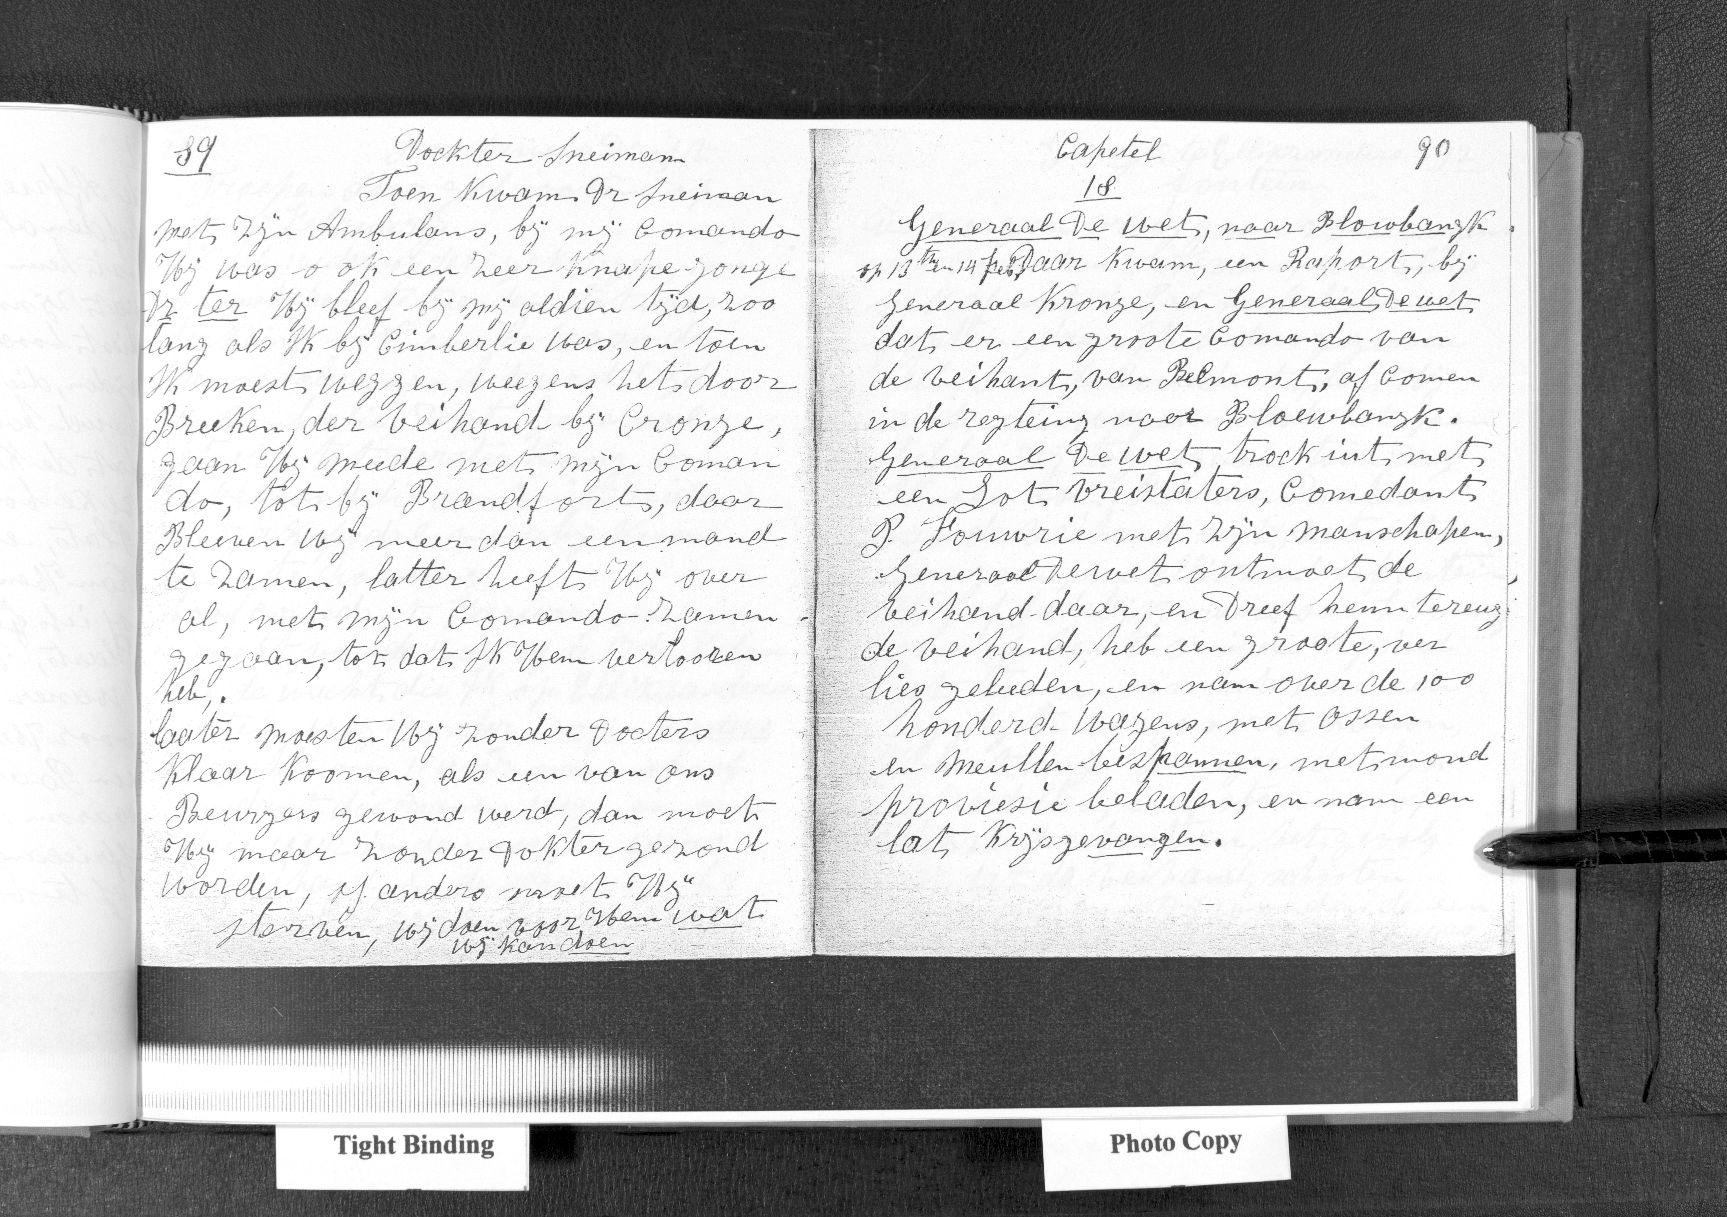 89
Dockter Sneimann
Toen Kwam Dr Sneiman
met zÿn Ambulans, bÿ mÿ Comando
Hÿ was o ok een zeer Knape jonge
Dr ter Hÿ bleef bÿ mÿ aldien tÿd, zoo
lang als Ik bÿ Cimberlie was, en toen
Ik moest weggen, weegens het door
Breeken, der veihand bÿ Cronje,
gaan Hÿ meede met mÿn Coman
do, tot bÿ Brandfort, daar
Bleeven Wÿ meer dan een mand
te zamen, latter heeft Hÿ over
al, met mÿn Comando zamen
gegaan, tot dat Ik Hem verlooren
heb,.
laater moesten Wÿ zonder Docters
Klaar Koomen, als een van ons
Beurgers gewond werd, dan moet
Hÿ maar zonder Dokter gezond
worden, of anders moet Hÿ
sterven, wÿ doen voor Hem wat
wÿ kan doen
Capetel 90
18
Generaal De wet, naar Blowbangk.
op 13th en 14 feb. Daar Kwam, een Raport, bÿ
Generaal Kronje, en Generaal De wet
dat er een groote Comando van
de veihant, van Belmont, af Comen
in de regteing naar Bloewbangk.
Generaal De wet trock iut met
een Lot vreistaters, Comedant
P. Fouwrie met zÿn manschapen,
Generaal Dewet ontmoet de
veihand daar, en Dreef henn tereug
de veihand, heb een groote, ver
lies geleeden, en nam over de 100
honderd wagens, met Ossen
en Meullen bespannen, met mond
proviesie beladen, en nam een
lat Krÿsgevangen.
Tight Binding
Photo Copy